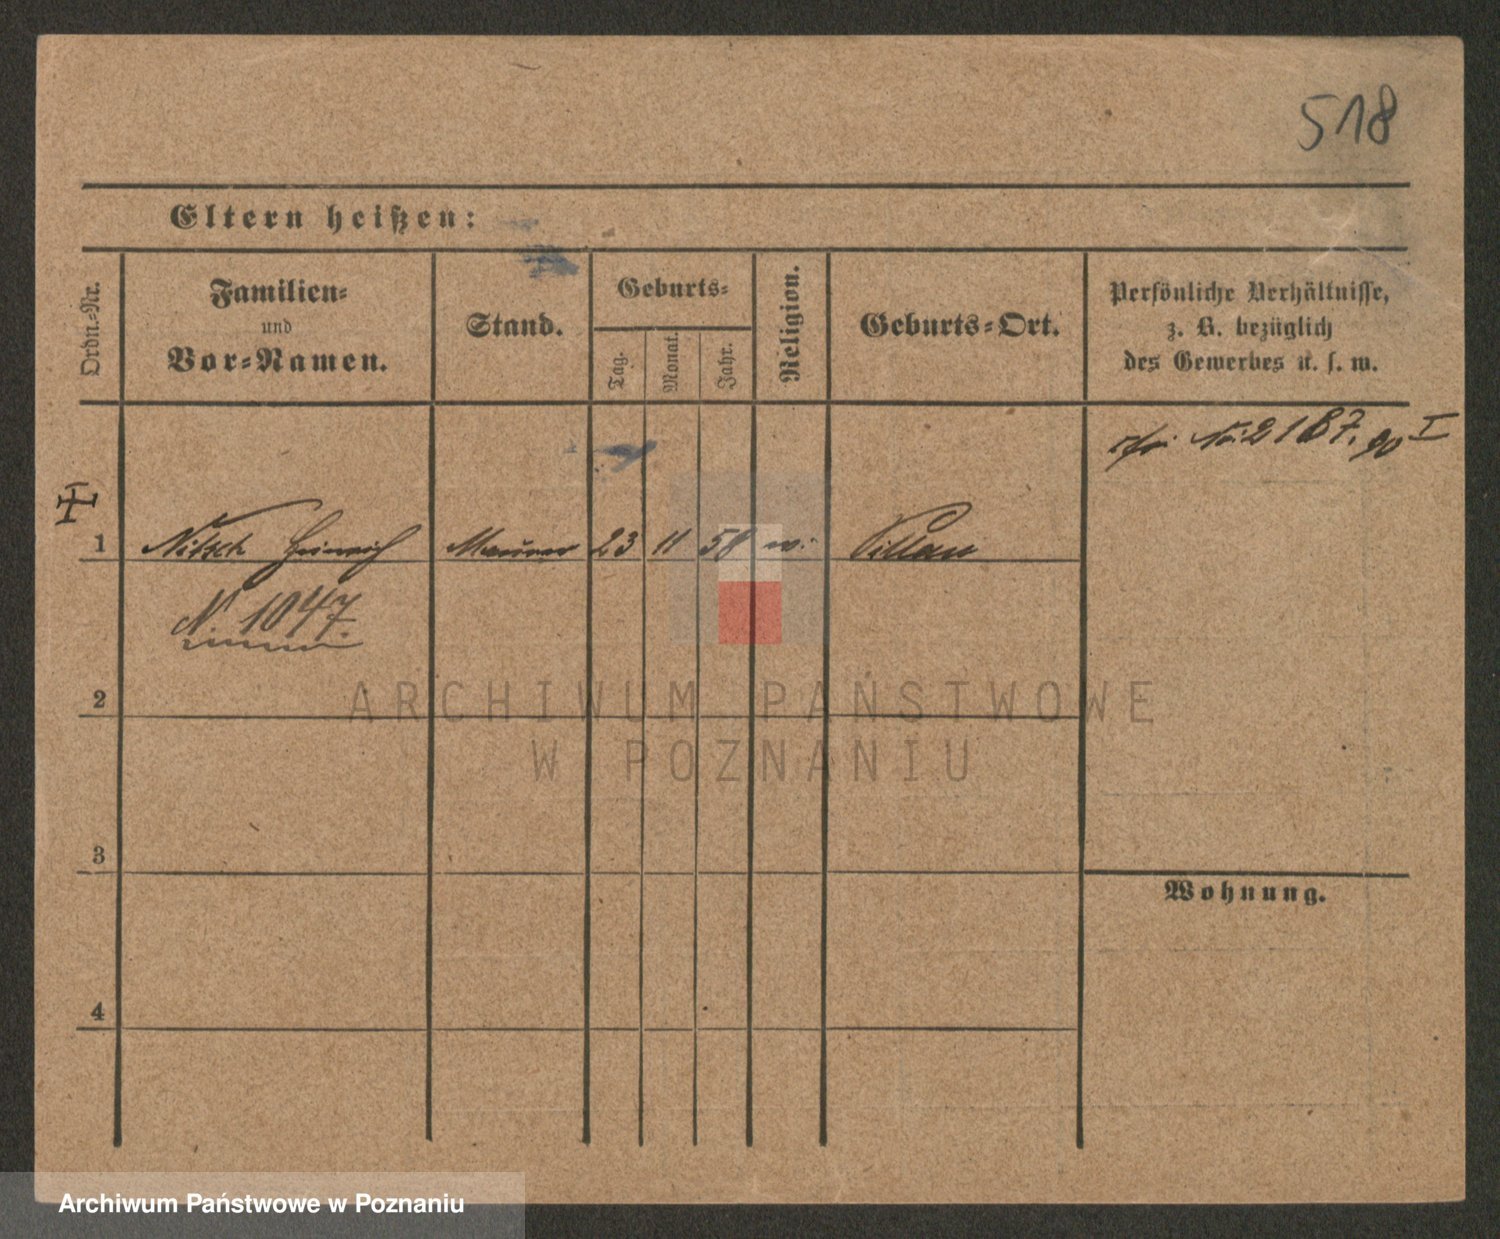 518
Eltern heißen:
Ordn.-Nr.
Familien-
und
Vor-Namen.
Stand.
Geburts-
Tag.
Monat.
Jahr.
Religion.
Geburts-Ort.
Persönliche Verhältnisse,
z. B. bezüglich
des Gewerbes u. s. w.
2187. 90 I
1 Nitsch Heinrich Maurer 23 11 58 Pillau
N. 1047.
2
ARCHIWUM PAŃSTWOWE
W POZNANIU
3
Wohnung.
4
Archiwum Państwowe w Poznaniu